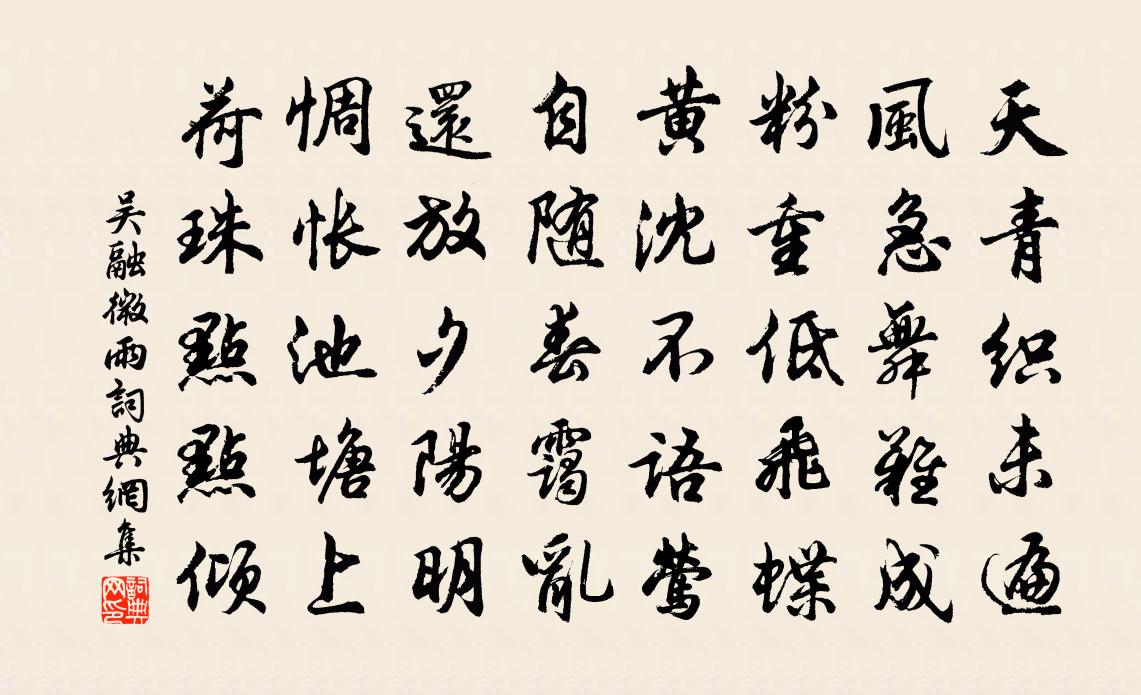 天青织未遍
風急舞難成
粉重低飛蝶
黄沈不語鶯
自随春靄亂
還放夕陽明
惆怅池塘上
荷珠點點倾
吴融微雨詞典網集
詞典网印